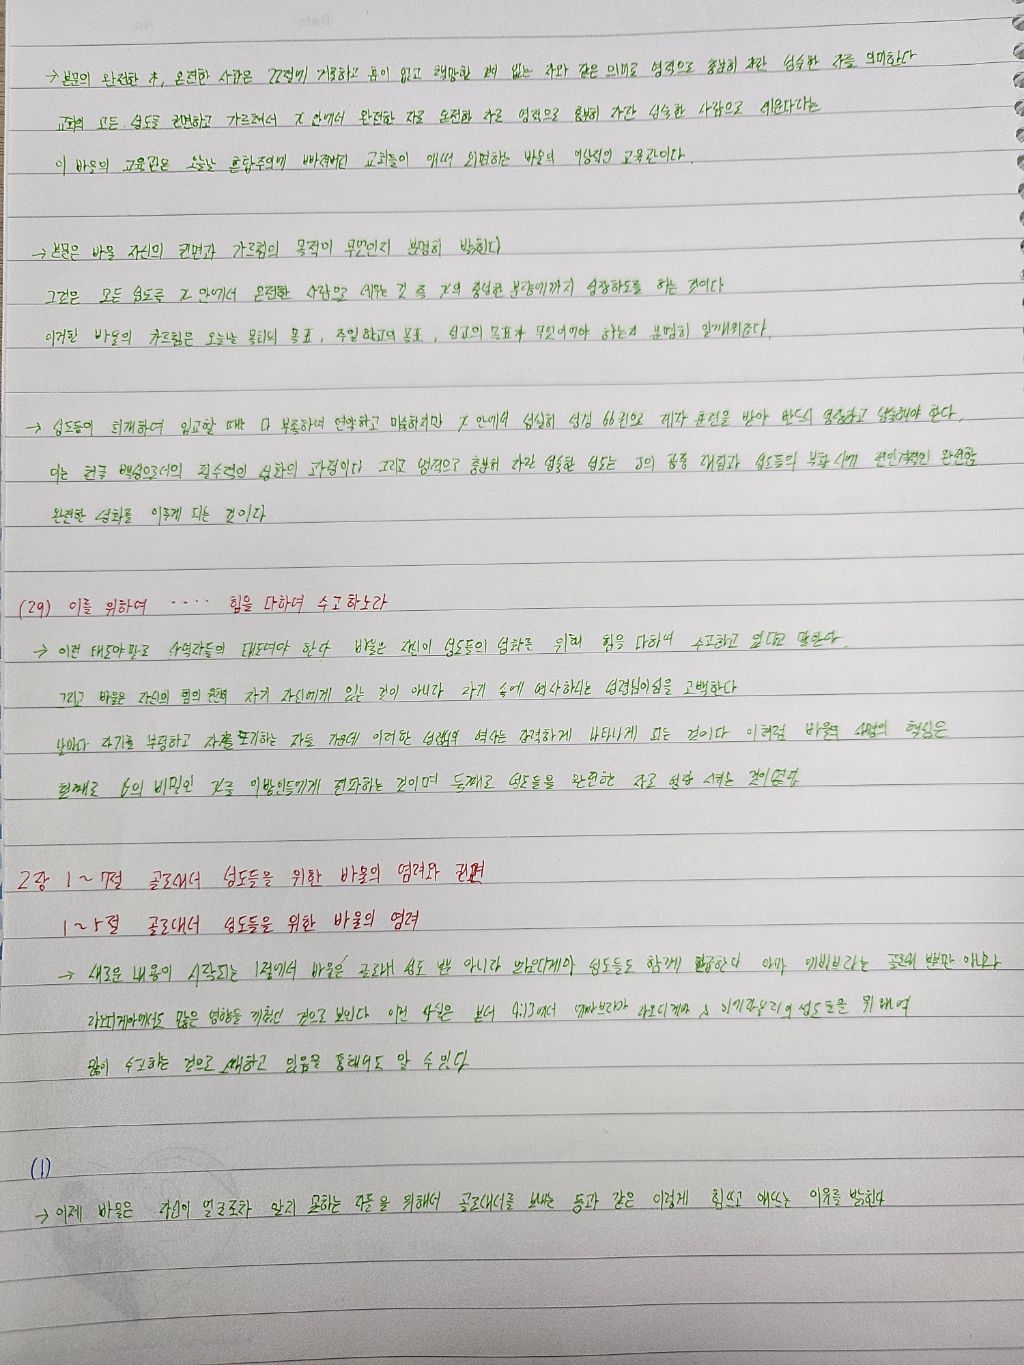 → 본문의 완전한 자, 온전한 사람은 22절에 거룩하고 흠이 없고 책망할 것이 없는 자와 같은 의미로 영적으로 충분히 자란 성숙한 자를 의미한다
교회의 모든 성도를 권면하고 가르쳐서 X 안에서 완전한 자로 온전한 자로 영적으로 충분히 자란 성숙한 사람으로 세운다라는
이 바울의 교육관은 오늘날 혼합주의에 빠져버린 교회들이 애써 외면하는 바울의 이상적인 교육관이다.
→ 본문은 바울 자신의 권면과 가르침의 목적이 무엇인지 분명히 밝힌다
그것은 모든 성도를 X 안에서 온전한 사람으로 세우는 것 즉 X의 충성한 분량에까지 성장하도록 하는 것이다
이러한 바울의 가르침은 오늘날 목회의 목표, 주일학교의 목표, 선교의 목표가 무엇이어야 하는지 분명히 일깨워준다.
→ 성도들이 회개하여 입교할 때는 다 부족하며 연약하고 미숙하지만 X 안에서 성실히 성경 66권으로 제자 훈련을 받아 반드시 영성하고 성숙해야 한다.
이는 천국 백성으로서의 필수적인 성화의 과정이다 그리고 영적으로 충분히 자란 성숙한 성도는 J의 공중 재림과 성도들의 부활 시에 전인격적인 완전함
완전한 성화를 이루게 되는 것이다
(29) 이를 위하여 ···· 힘을 다하여 수고하노라
→ 이런 태도야말로 사역자들의 태도여야 한다 바울은 자신이 성도들의 성화를 위해 힘을 다하여 수고하고 있다고 말한다.
그리고 바울은 자신의 힘의 원천이 자기 자신에게 있는 것이 아니라 자기 속에 역사하시는 성령님이심을 고백한다
날마다 자기를 부정하고 자기를 포기하는 자들 가운데 이러한 성령의 역사는 강력하게 나타나게 되는 것이다 이처럼 바울의 사명의 핵심은
첫째로 G의 비밀인 X를 이방인들에게 전파하는 것이며 둘째로 성도들을 완전한 자로 성장 시키는 것이었다
2장 1~7절 골로새서 성도들을 위한 바울의 염려와 권면
1~5절 골로새서 성도들을 위한 바울의 염려
→ 새로운 내용이 시작되는 1절에서 바울은 골로새 성도 뿐 아니라 라오디게아 성도들도 함께 언급한다 아마 에바브라는 골로새 뿐만 아니라
라오디게아에서도 많은 영향을 끼쳤던 것으로 보인다 이런 사실은 본서 4:13에서 에바브라가 라오디게아 & 히에라볼리의 성도들을 위하여
많이 수고하는 것으로 소개하고 있음을 통해서도 알 수 있다
(1)
→ 이제 바울은 자신이 얼굴조차 알지 못하는 자들을 위해서 골로새서를 보내는 등과 같은 이렇게 힘쓰고 애쓰는 이유를 밝힌다